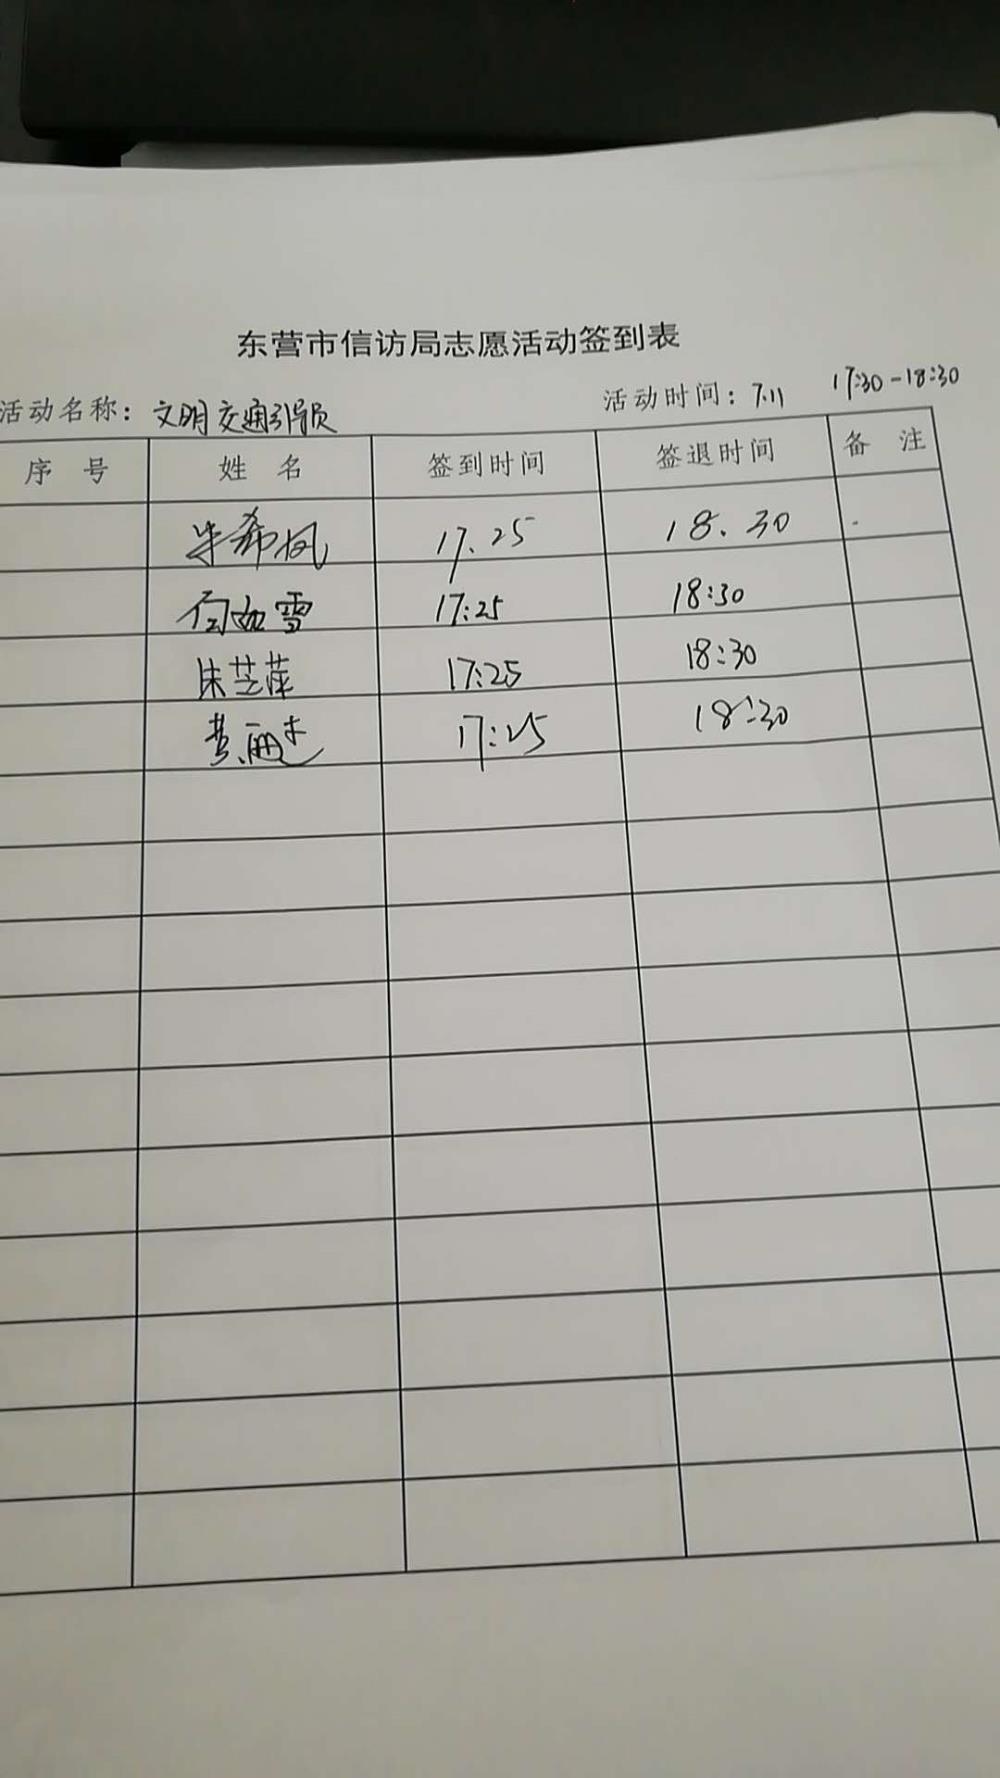 东营市信访局志愿活动签到表
活动名称：文明交通引导员 活动时间：7.11 17:30-18:30
序 号 姓 名 签到时间 签退时间 备 注
牛希凤 17.25 18.30
17:25 18:30
朱芝萍 17:25 18:30
17:25 18:30